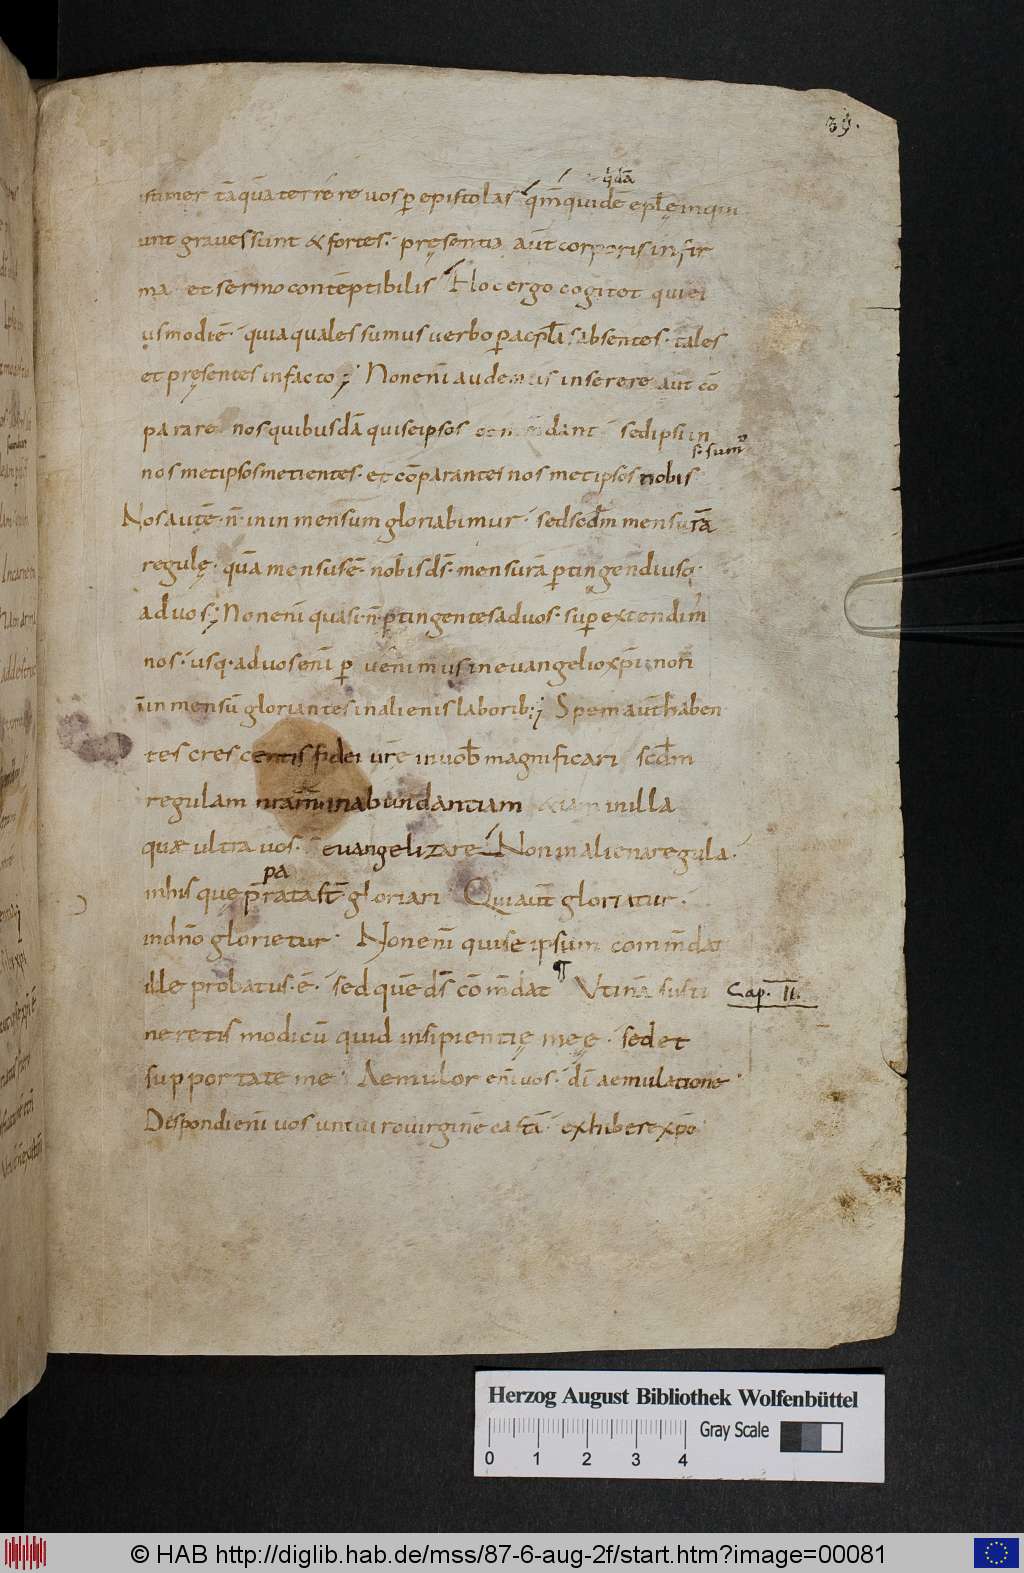 39.
q̄dā
stimer tāquā terrere vos per epistolas qm̄ quidē eplę inqui
unt graves sunt & fortes. pręsentia aūt corporis infir
ma et sermo contēptibilis Hoc ergo cogitet qui ei
usmodi ē. quia quales sumus verbo p̱ acplā absentes. tales
et pręsentes in facto; Non enī audemus inserere aut cō
parare nos quibusdā qui seipsos dant sed ipsi in
s. sumꝰ
nos metipsos metientes. et cōparantes nosmetipsos nobis
Nos autē. n̄. in inmensum gloriabimur. sed secdm̄ mensurā
regulę. quā mensus ē. nobis ds̄. mensurā p̱tingendi usq.
ad vos; Non enī quasi n̄ p̱tingentes ad vos. sup̱extendim̄
nos. usq. ad vos enī p̱venimus in evangelio xpī. non
in inmensū gloriantes in alienis laborib;; Spem aūt haben
tes crescentis fidei vr̄e in vob̄ magnificari scdm̄
regulam nr̄am in abundantiam etiam in illa
quæ ultra vos. evangelizare Non in aliena regula.
pa
in his quę p̄rata st̄ gloriari Qui aūt gloriatur.
in dn̄o glorietur. Non enī qui se ipsum commdat
ille probatus. ē. sed quē ds̄ cōm̄dat ¶ Utinā susti
Cap. II.
neretis modicū quid insipientię meę. sed et
supportate me. Aemulor enī vos. dī aemulatione.
Despondi enī vos uni viro virginē castā. exhibere xp̄o
Herzog August Bibliothek Wolfenbüttel
Gray Scale
0 1 2 3 4
© HAB http://diglib.hab.de/mss/87-6-aug-2f/start.htm?image=00081